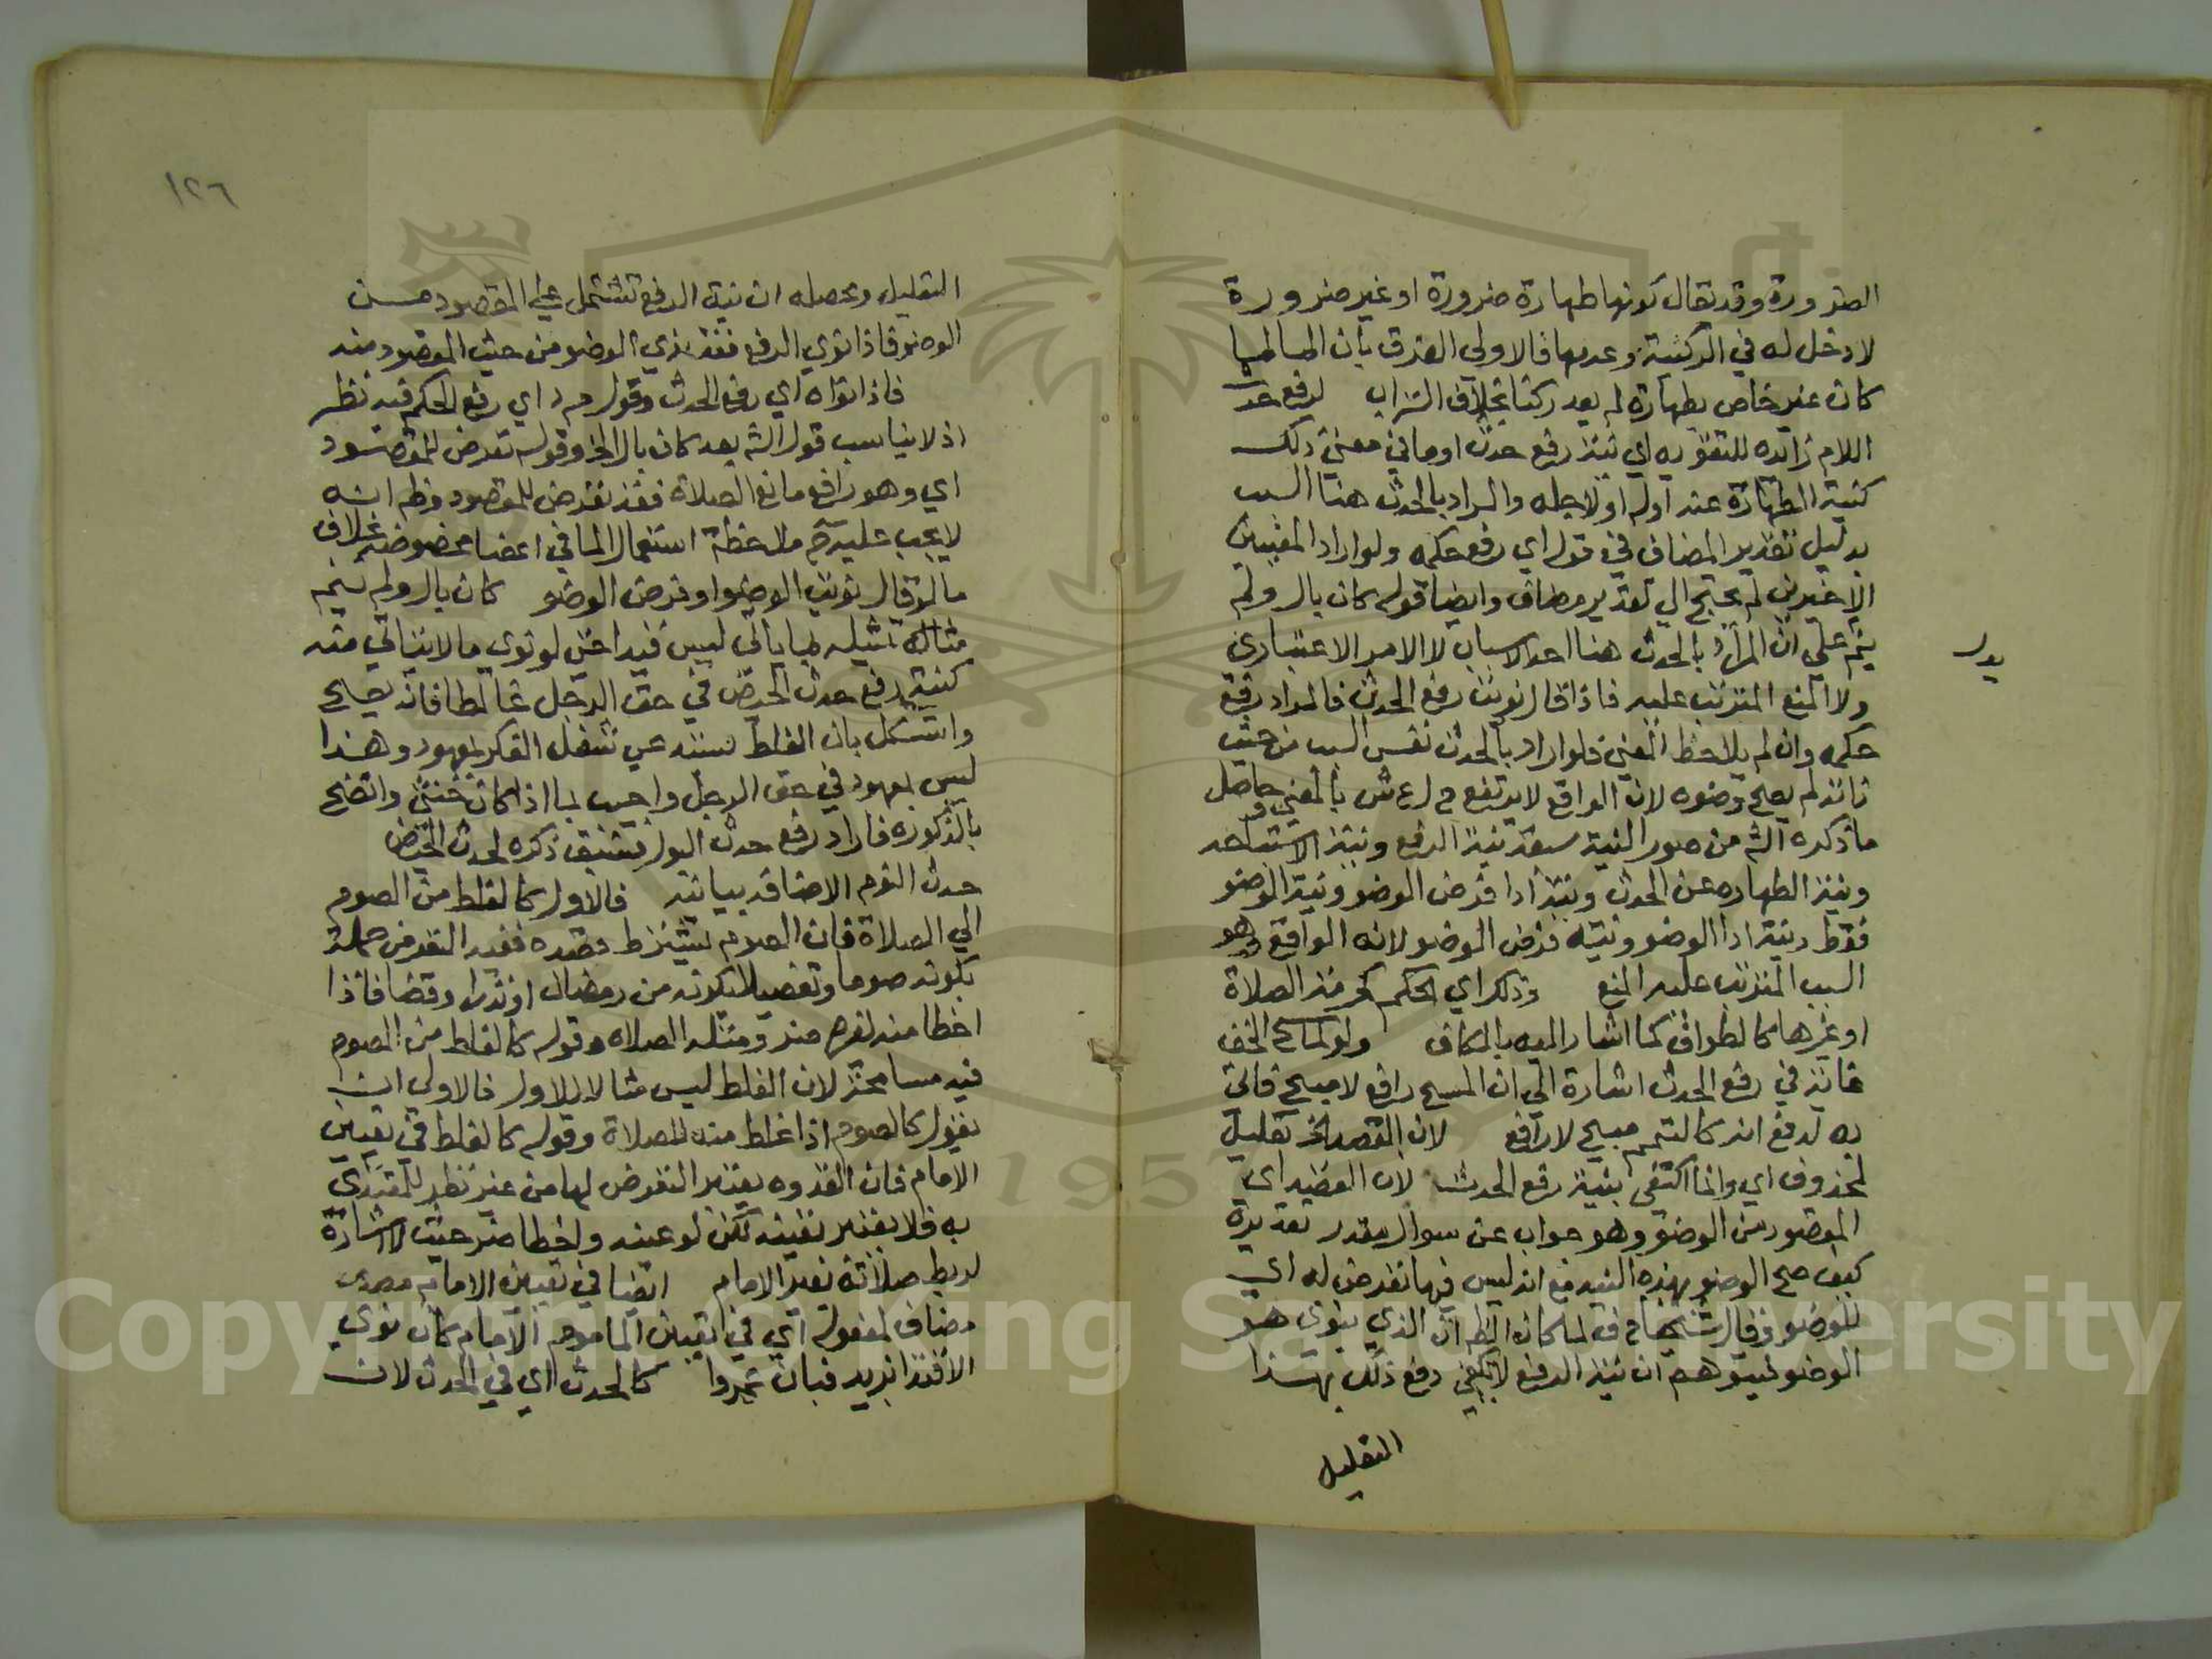 الضرورة وقد يقال كونها طهارة ضرورة او غير ضرورة
لا دخل له في الركنية وعدمها فالاولي الفرق بان الماء لما
كان غير خاص بطهارة لم يعد ركنا بخلاف التراب لرفع حدث
اللام زائده للتقويه اي نية رفع حدث او ما في معني ذلك
كنية الطهارة عنه اوله او لاجله والمراد بالحدث هنا السبب
بدليل تقدير المضاف في قوله اي رفع حكمه ولو اراد المعنيين
الاخيرين لم يحتج الي تقدير مضاف وايضا قوله كان بال ولم
ينم علي ان المراد بالحدث هنا احد الاسباب لا الامر الاعتباري
يدل
ولا المنع المترتب عليه فاذا قال نويت رفع الحدث فالمراد رفع
حكمه وان لم يلاحظ المعني فلو اراد بالحدث نفس السبب من حيث
ذاته لم يصح وضوه لان الواقع لا يرتفع م ر ع ش بالمعني وحاصل
ما ذكره الش من صور النية سبعة نية الرفع ونية الاستباحه
ونية الطهاره عن الحدث ونية ادا فرض الوضو ونية الوضو
فقط ونية ادا الوضو ونيه فرض الوضو لانه الواقع وهو
السبب المترتب عليه المنع وذلك اي الحكم كحرمة الصلاة
او غيرها كالطواف كما اشار اليه بالكاف ولو لماسح الخف
غايته في رفع الحدث اشارة الي ان المسح رافع لا مبيح فاتي
به لدفع انه كالتيمم مبيح لا رافع لان القصد الخ تعليل
لمحذوف اي وانما اكتفي بنية رفع الحدث لان القصد اي
المقصود من الوضو وهو جواب عن سوال مقدر تقديره
كيف صح الوضو بهذه النية مع انه ليس فيها تعرض له اي
للوضو وقال شيخنا ح ف لما كان الظم ان الذي ينوي هو
الوضو فيتوهم ان نية الرفع لا تكفي دفع ذلك بهذا
التعليل
١٢٦
التعليل ومحصله ان نية الرفع تشتمل على المقصود من
الوضو فاذا نوي الرفع فقد نوي الوضو من حيث المقصود منه
فاذا نواه اي رفع الحدث وقول م د اي رفع الحكم فيه نظر
اذ لا يناسب قول الش بعد كان بال الخ وقوله تعرض للمقصود
اي وهو رافع مانع الصلاة فقد تعرض للمقصود وظم انه
لا يجب عليه ح ملاحظة استعمال الما في اعضا مخصوصة بخلاف
ما لو قال نويت الوضو او فرض الوضو كان بال ولم ينم
مثاله تمثيله لما ياتي ليس قيدا حتي لو نوي ما لا يتاتي منه
كنية رفع حدث الحيض في حق الرجل غالطا فانه يصح
واستشكل بان الغلط ينشئه عن شغل الفكر بمعهود وهذا
ليس بمعهود في حق الرجل واجيب بما اذا كان خنثى واتضح
بالذكوره فاراد رفع حدث البول فسبق ذكره لحدث الحيض
حدث النوم الاضافه بيانية فالاول كالغلط من الصوم
الي الصلاة فان الصوم يشترط قصده ففيه التعرض جملة
بكونه صوما وتفصيلا بكونه من رمضان او نذرا وقضا فاذا
اخطا منه لغيره ضر ومثله الصلاه وقوله كالغلط من الصوم
فيه مسامحة لان الغلط ليس مثالا للاول فالاولي ان
يقول كالصوم اذا غلط منه للصلاة وقوله كالغلط في تعيين
الامام فان القدوه يعتبر التعرض لها من غير نظر للمقتدي
به فلا يعتبر تعيينه لكن لو عينه واخطا ضر حيث لا اشارة
لربط صلاته بغير الامام ايضا في تعيين الامام مصدر
مضاف لمفعوله اي في تعيين الماموم الامام كان نوي
الاقتدا بزيد فبان عمروا كالحدث اي في الحدث لان